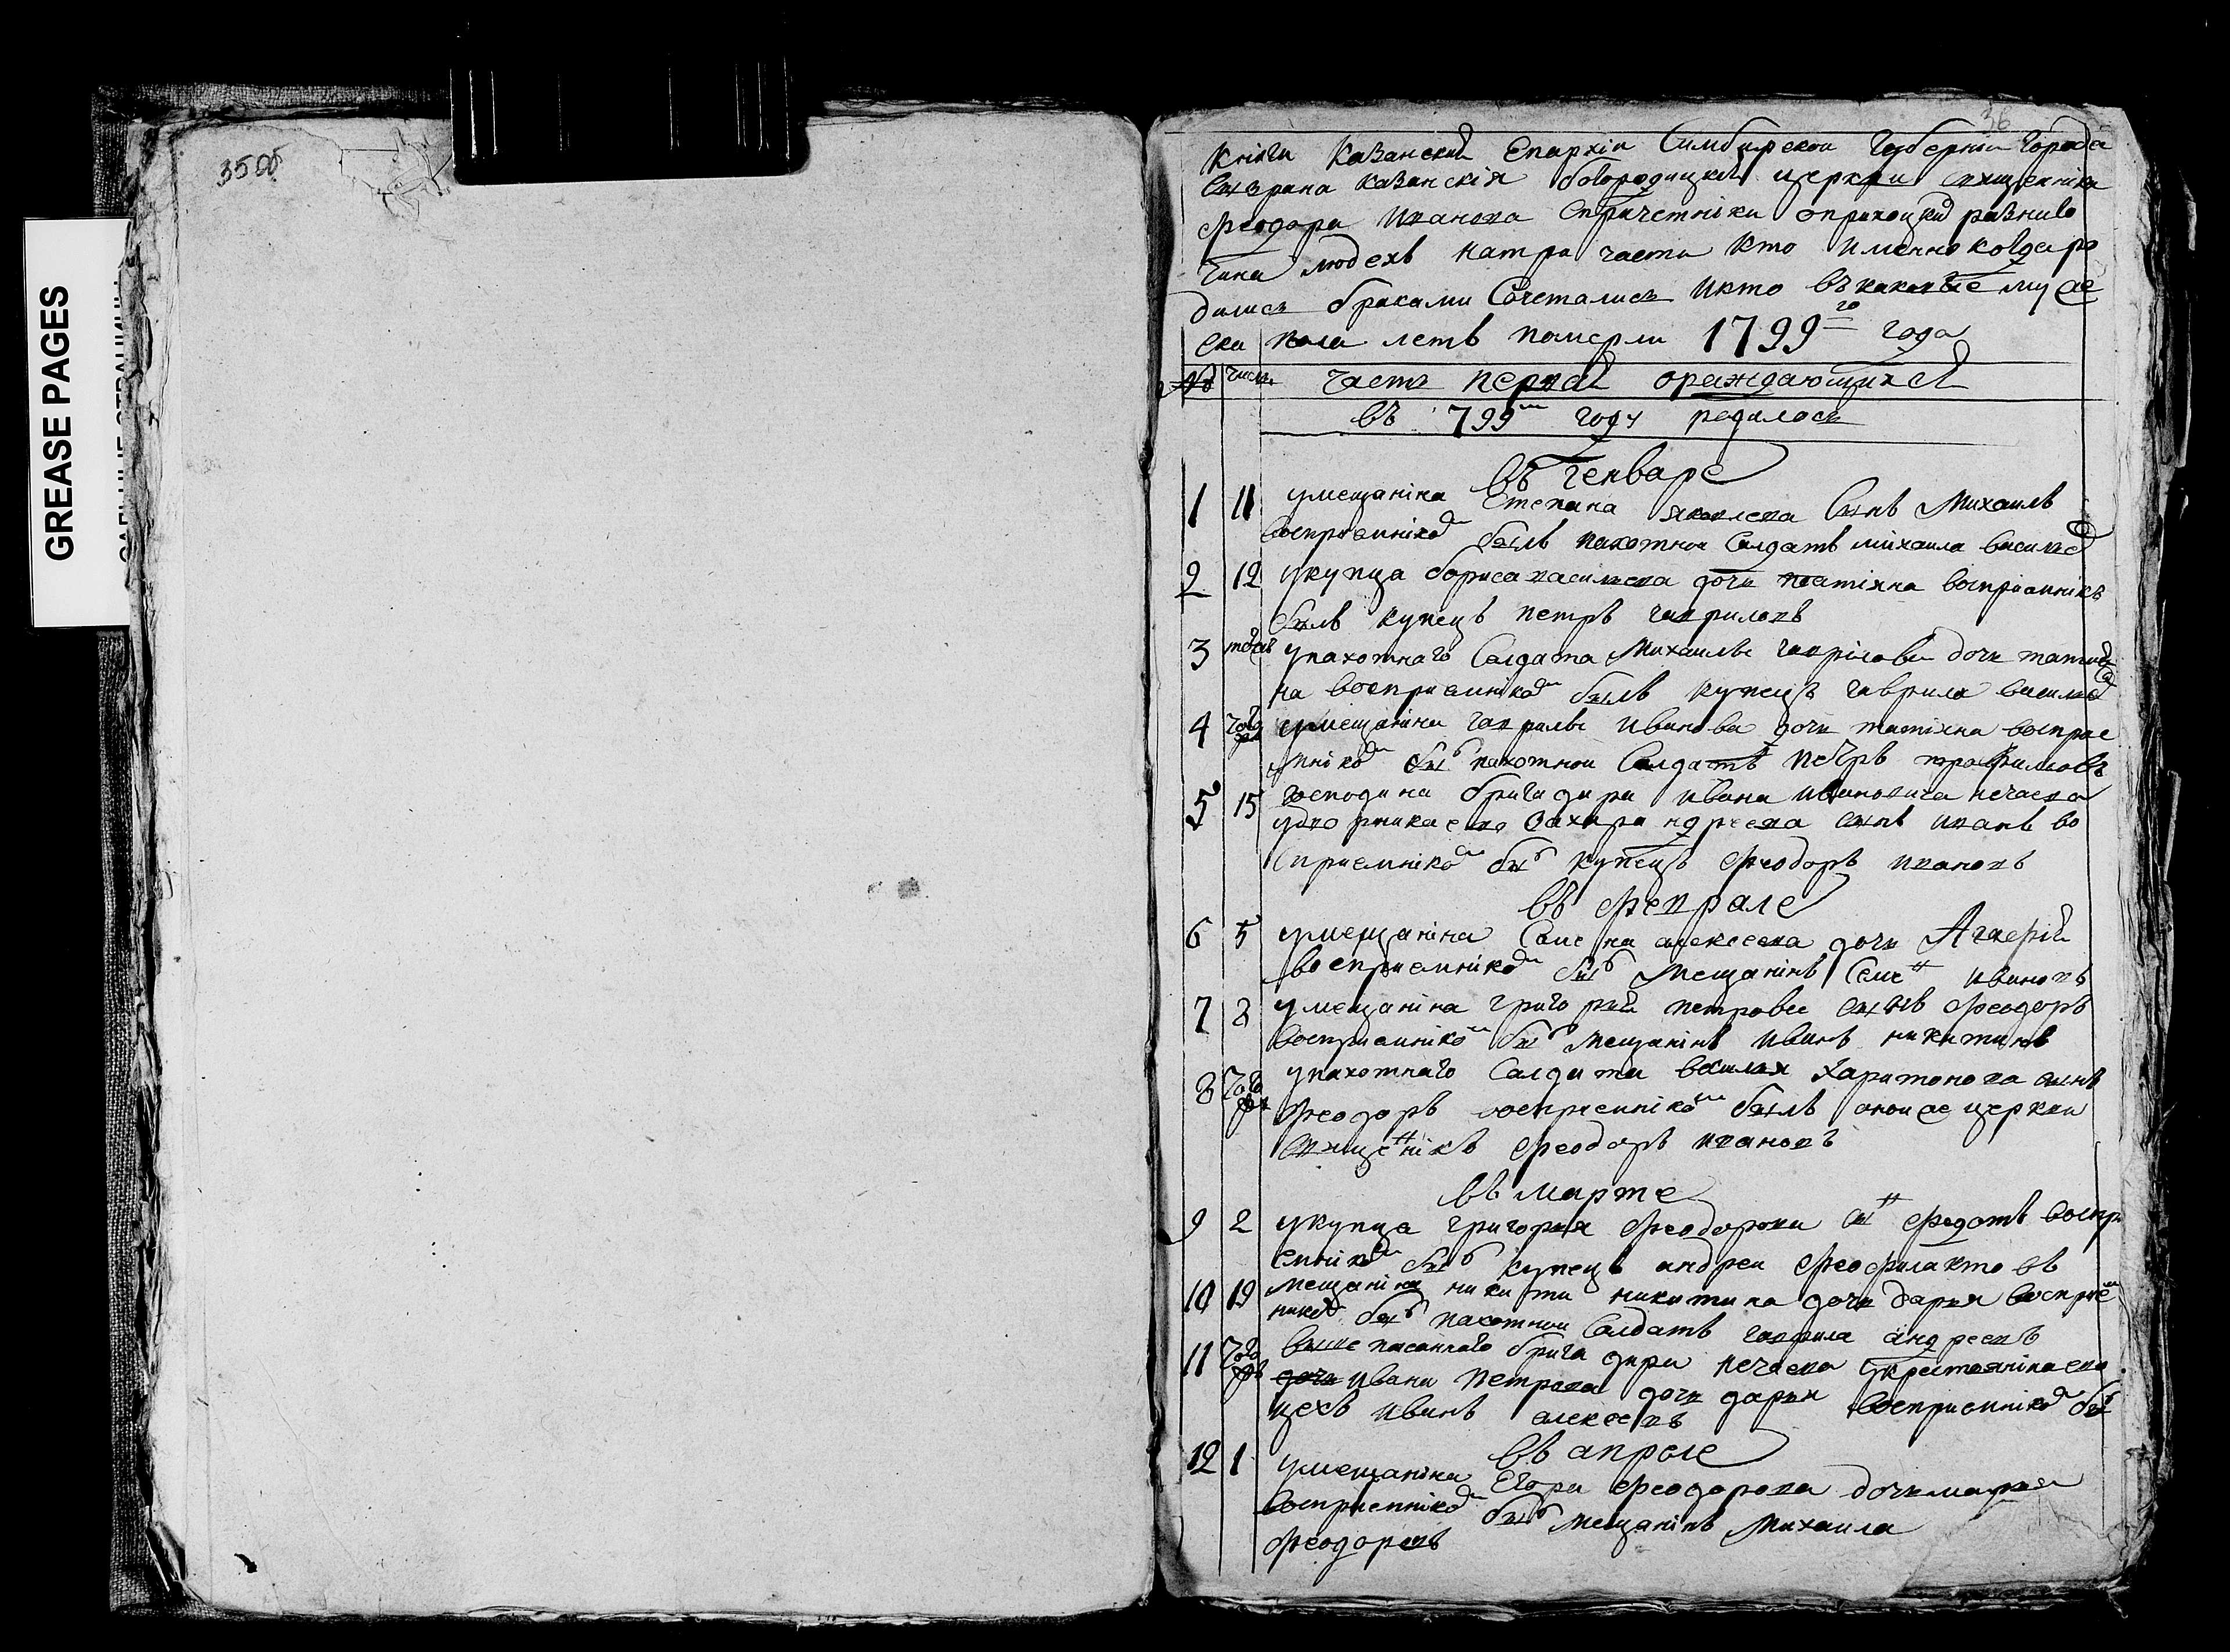 35 об
GREASE PAGES
36
Книги Казанской Епархіи Симбирской Губерніи Города
Сызрана Казанскія богородицкія церкви священника
Феодора Иванова Спричетники оприходскихъ разнаго
чина людехъ натри части кто имянно когда ро
дились браками Сочетались икто въ какое
ска пола летъ померли 1799го года
№ числа Часть первая ораждающихся
въ 799м году родилось
въ генваре
1 11 умещаніна Степана яковлева Сынъ Михаилъ
воспріемникомъ былъ пахотной Салдатъ михаила василье
2 12 укупца бориса васильева дочь татіяна воспріемникъ
былъ купецъ петръ гавриловъ
3 тогожъ упахотнаго Салдата Михаилы гаврілова дочь татия
на воспріемникомъ былъ купецъ гаврила василье
4 того умещаніна гаврилы иванова дочь татіяна восприе
мнікомъ былъ пахотной Салдатъ петръ трофимовъ
5 15 господина бригадира ивана ивановича нечаева
удворника ево Захара ндреева сынъ иванъ во
Спріемнікомъ былъ купецъ Феодоръ ивановъ
въ Феврале
6 5 умещаніна Семена алексеева дочь
воспріемнікомъ былъ мещанінъ Семенъ ивановъ
7 8 умещаніна григорья петрова сынъ Феодоръ
воспріемнікомъ былъ мещанінъ иванъ никитинъ
8 того упахотнаго Салдата василья харитонова сынъ
Феодоръ воспріемнікомъ былъ оной же церкви
священнікъ Феодоръ ивановъ
въ марте
9 2 укупца григорья Феодорова сынъ Федотъ воспри
емнікомъ былъ купецъ андреи Феофилактовъ
10 19 мещаніна никиты никитина дочь дарья воспріем
никомъ былъ пахотной Салдатъ гаврила андреевъ
11 того вышеписаннаго бригадира нечаева укрестьяніна ево
дочь ивана петрова дочь дарья воспріемнікомъ былъ
цехъ иванъ алексеевъ
въ апреле
12 1 умещаніна Егора Феодорова дочь марья
воспріемнікомъ былъ мещанінъ михаила
Феодоровъ